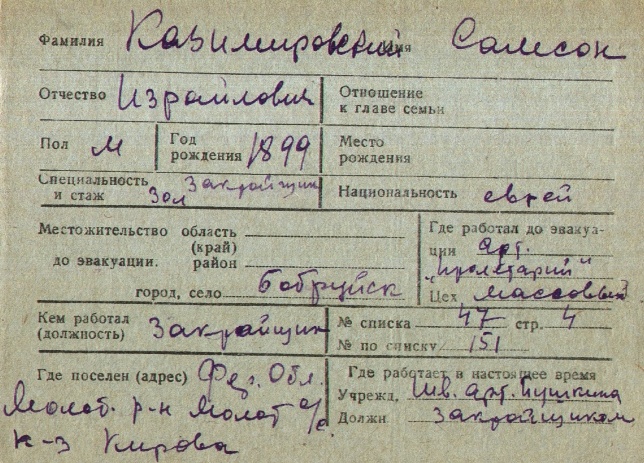 Фамилия Казимировский Имя Самсон
Отчество Израйлович Отношение к главе семьи
Пол М Год рождения 1899 Место рождения
Специальность и стаж Закройщик Национальность еврей
Местожительство область (край)
до эвакуации. район
город, село Бобруйск
Где работал до эвакуации Арт. "Пролетарий"
Цех Массовый
Кем работал (должность) Закройщик
№ списка 47 стр. 4
№ по списку 151
Где поселен (адрес) Фер. Обл.
Молот. р-н Молот с/с
к-з Кирова
Где работает в настоящее время
Учрежд. Шв. арт. Пушкина
Должн Закройщиком